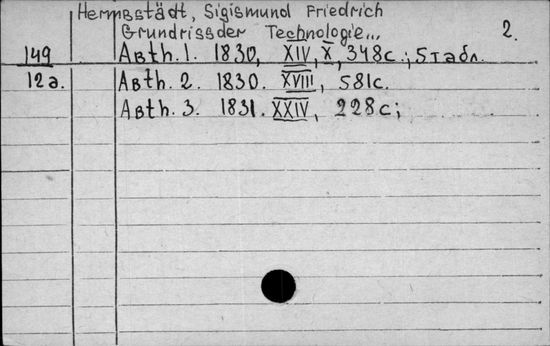 Hermbstädt, Sigismund Friedrich
Grundriss der Technologie... 2.
149 Abth. 1. 1830, XIV, X, 348с.; 5 табл.
12а. Abth. 2. 1830. XVIII, 581с.
Abth. 3. 1831. XXIV, 228с;